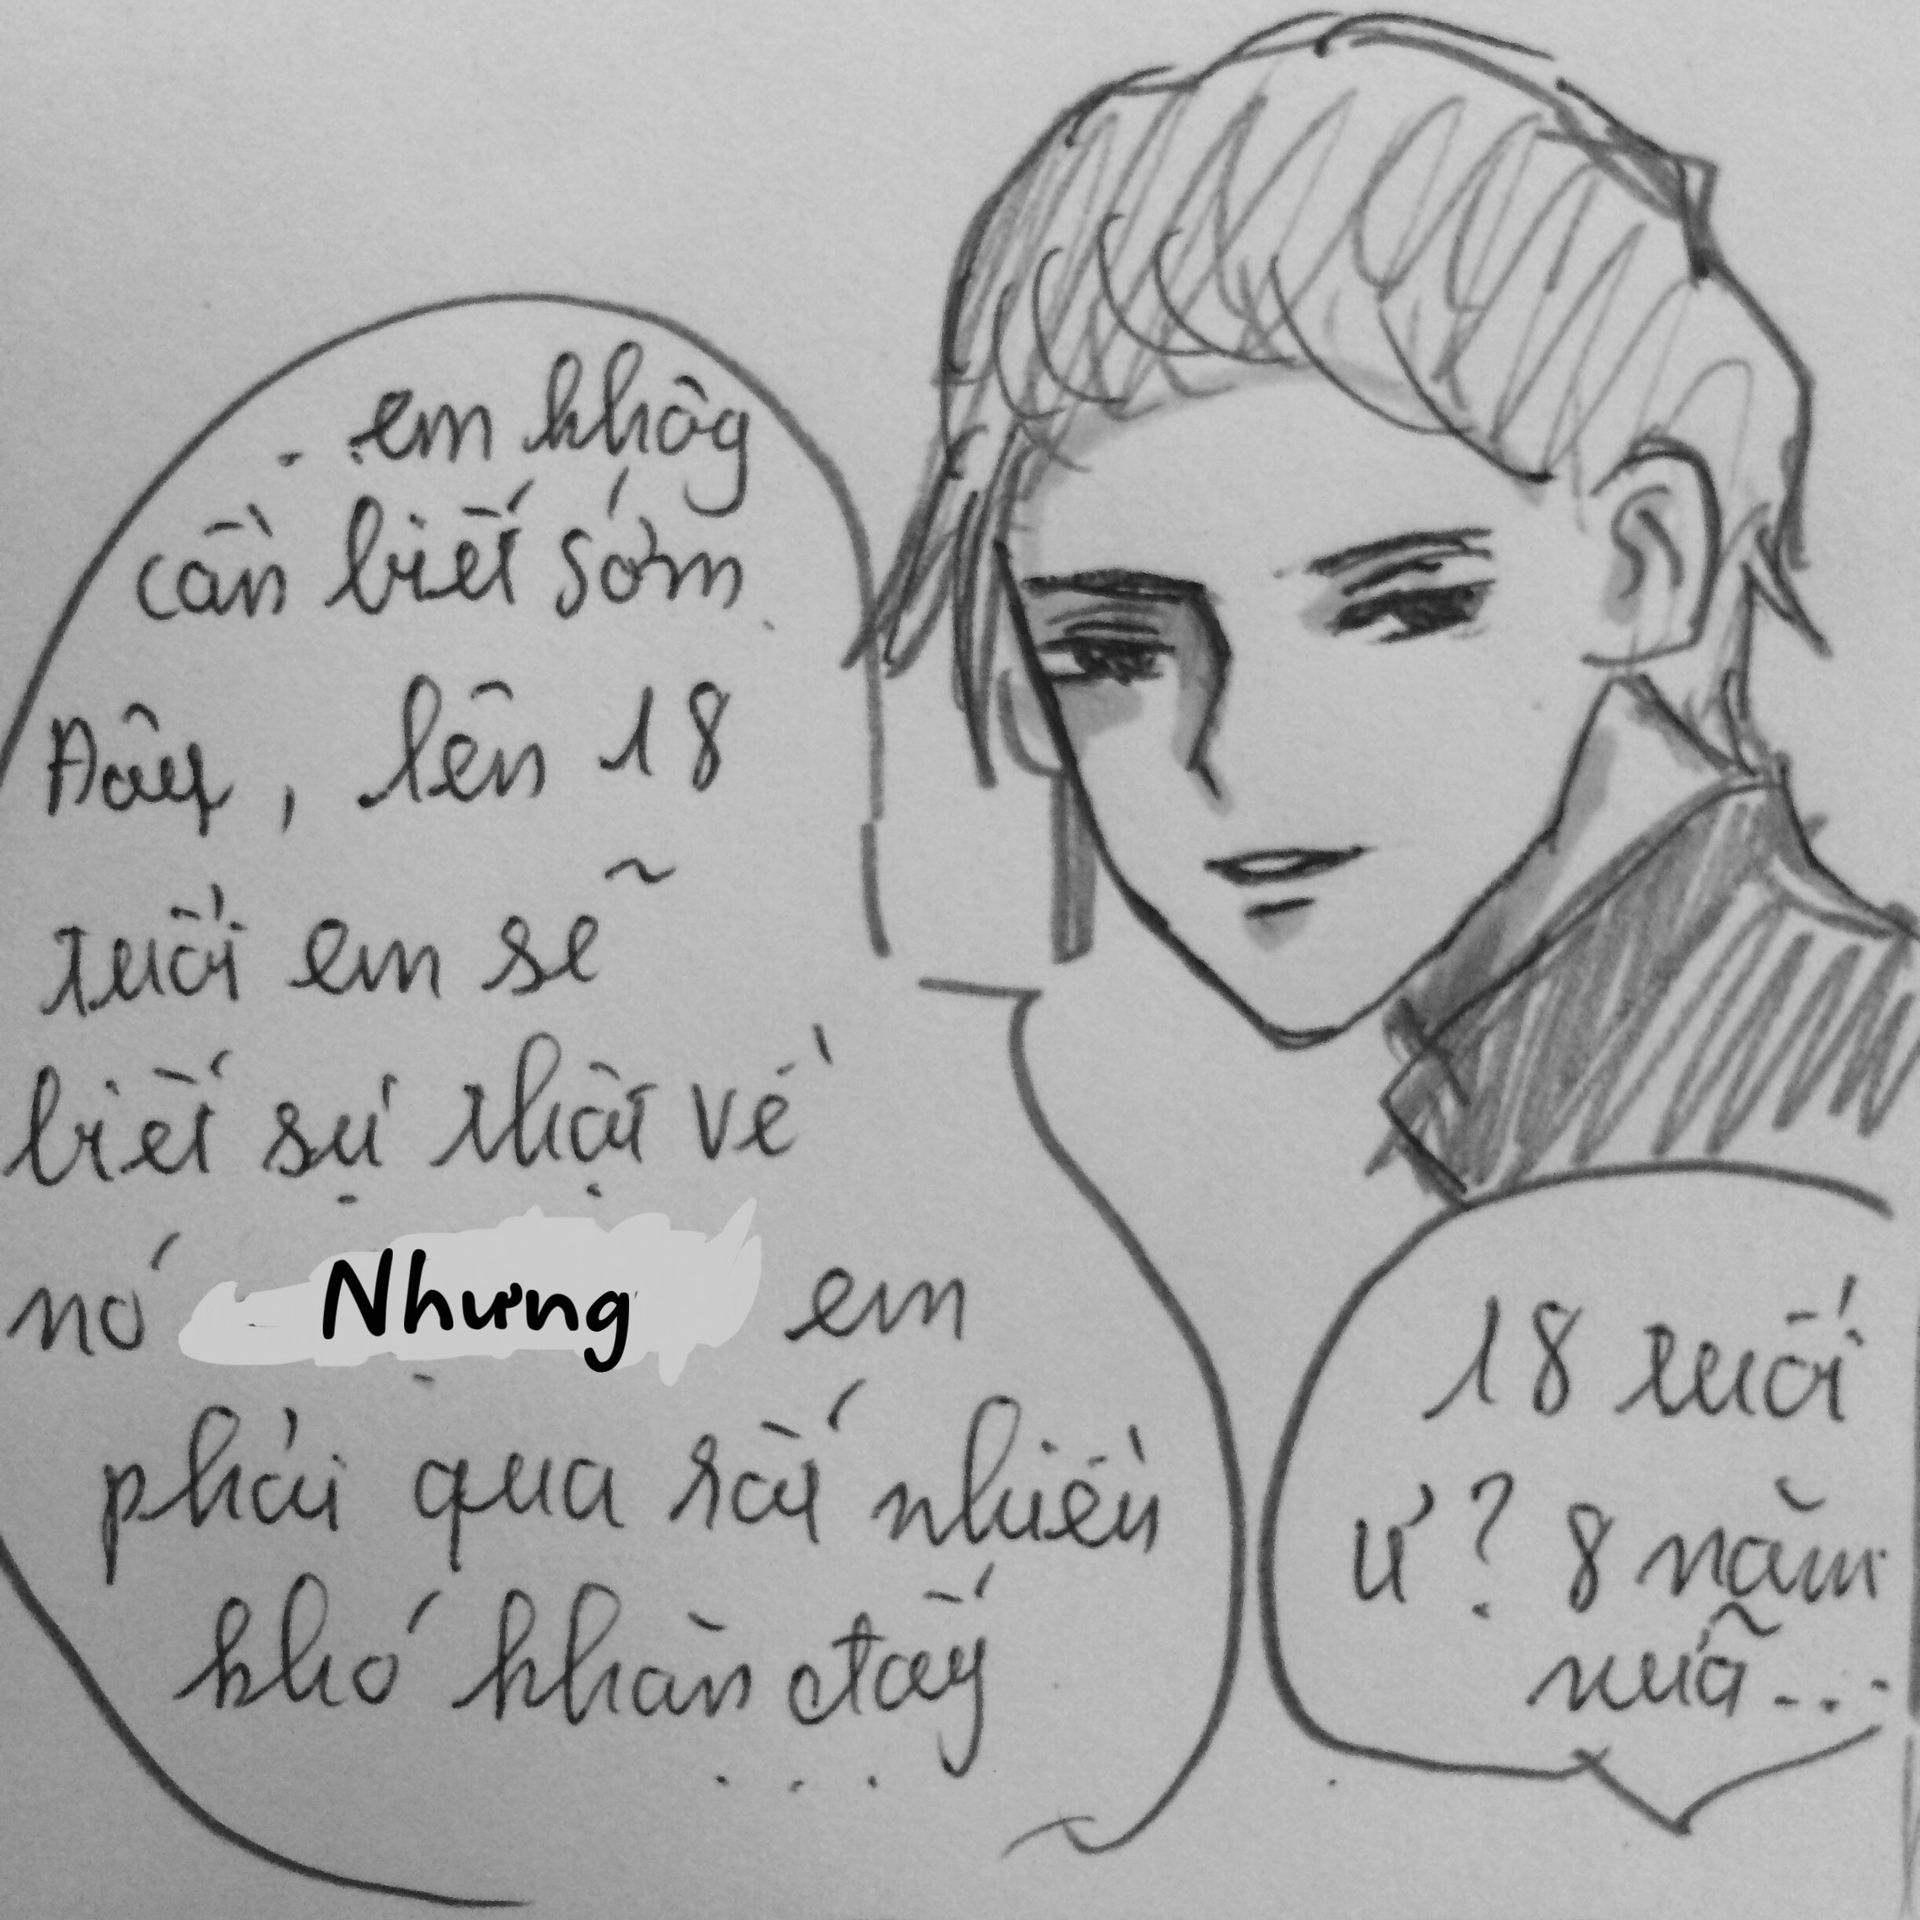 . . em khôg
cần biết sớm
Đâu, lên 18
tuổi em sẽ
biết sự thật về
nó Nhưng em
phải qua rất nhiều
khó khăn đấy
...
18 tuổi
ư? 8 năm
nữa...